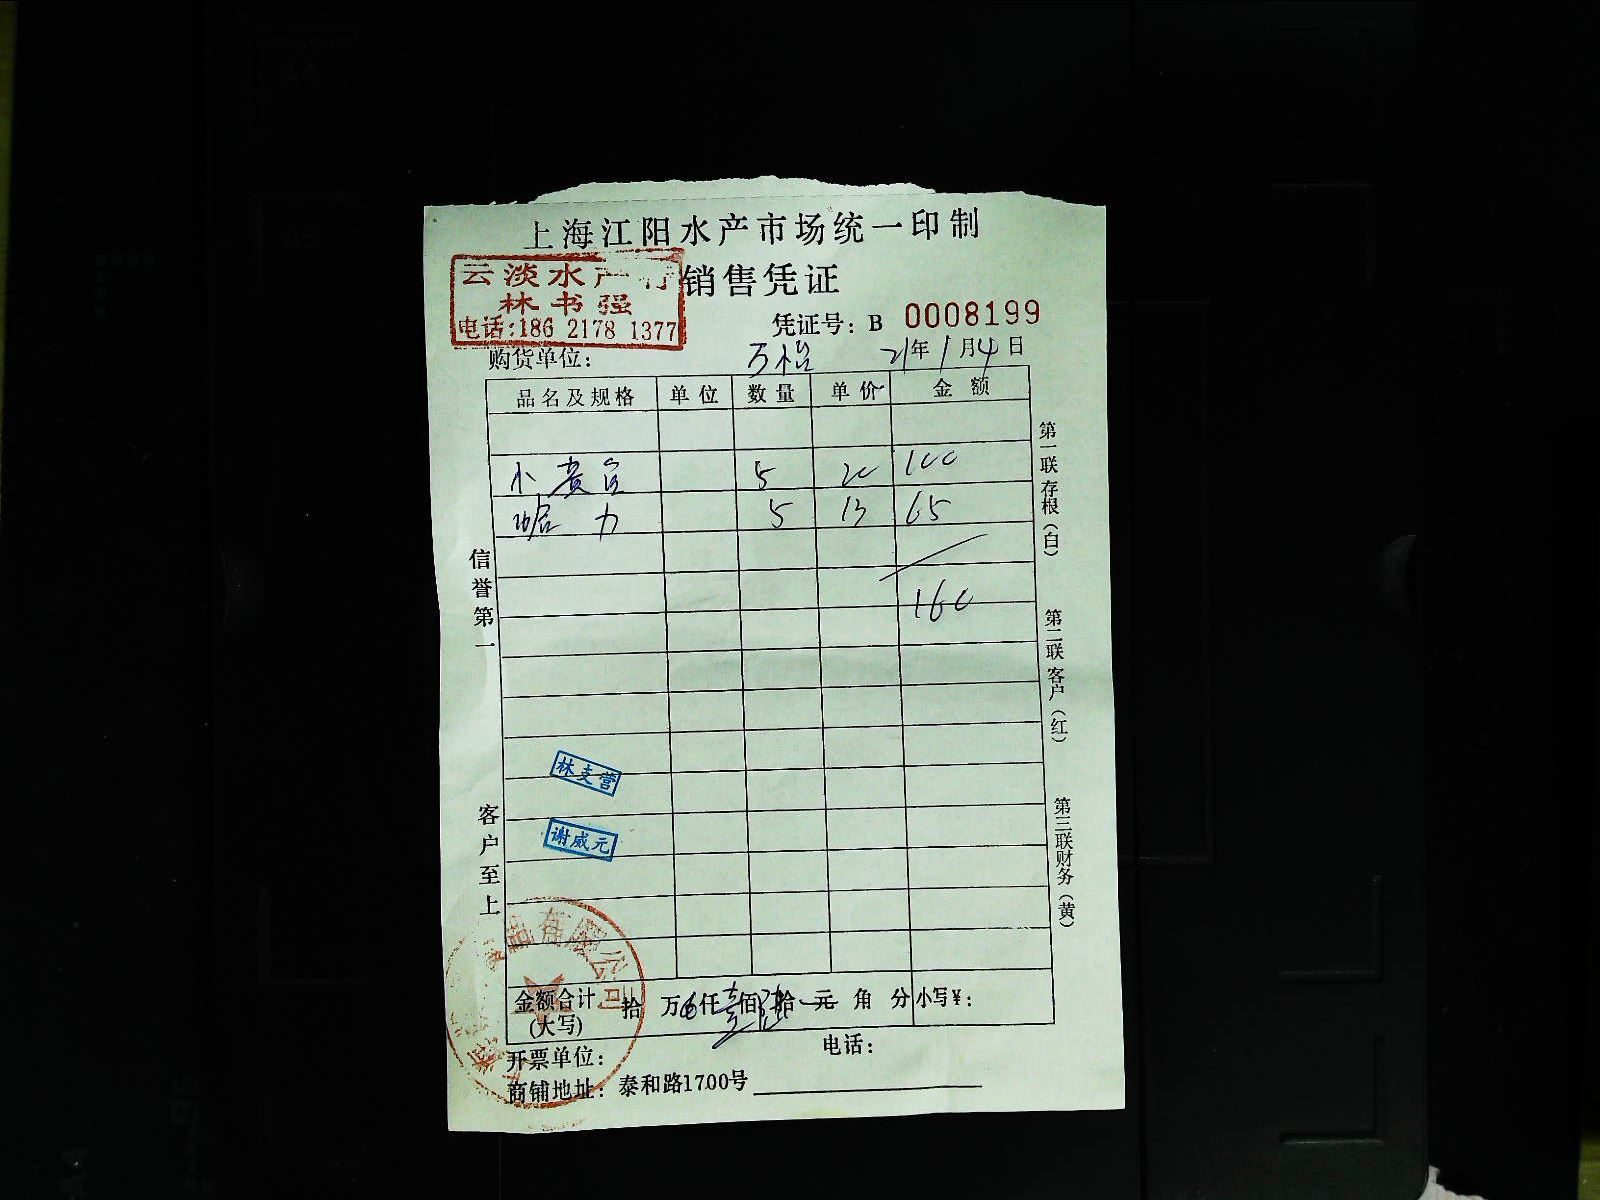 上海江阳水产市场统一印制
云淡水产行 销售凭证
林书强
电话:186 2178 1377
凭证号: B 0008199
购货单位: 万怡 21年1月4日
品名及规格 单位 数量 单价 金额
小黄 5 20 100
蛤力 5 13 65
160
林支营
谢威元
金额合计(大写) 拾 万 仟 壹佰 陆拾 元 角 分 小写¥:
开票单位: 电话:
商铺地址: 泰和路1700号
信誉第一
客户至上
第一联 存根(白)
第二联 客户(红)
第三联 财务(黄)
有限公司